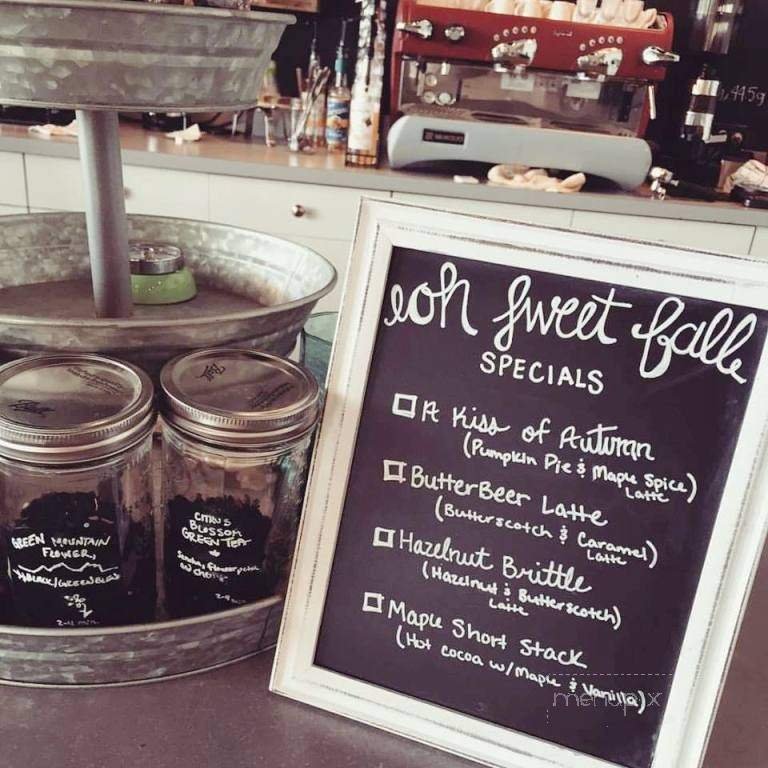 eoh sweet fall
SPECIALS
A Kiss of Autumn
(Pumpkin Pie & Maple Spice)
Latte
ButterBeer Latte
(Butterscotch & Caramel)
Latte
Hazelnut Brittle
(Hazelnut & Butterscotch)
Latte
Maple Short Stack
(Hot cocoa w/Maple & Vanilla)
GREEN MOUNTAIN
FLOWER,
BLACK/GREEN BLEND
CITRUS
BLOSSOM
GREEN TEA
Ball
Ball
menupix